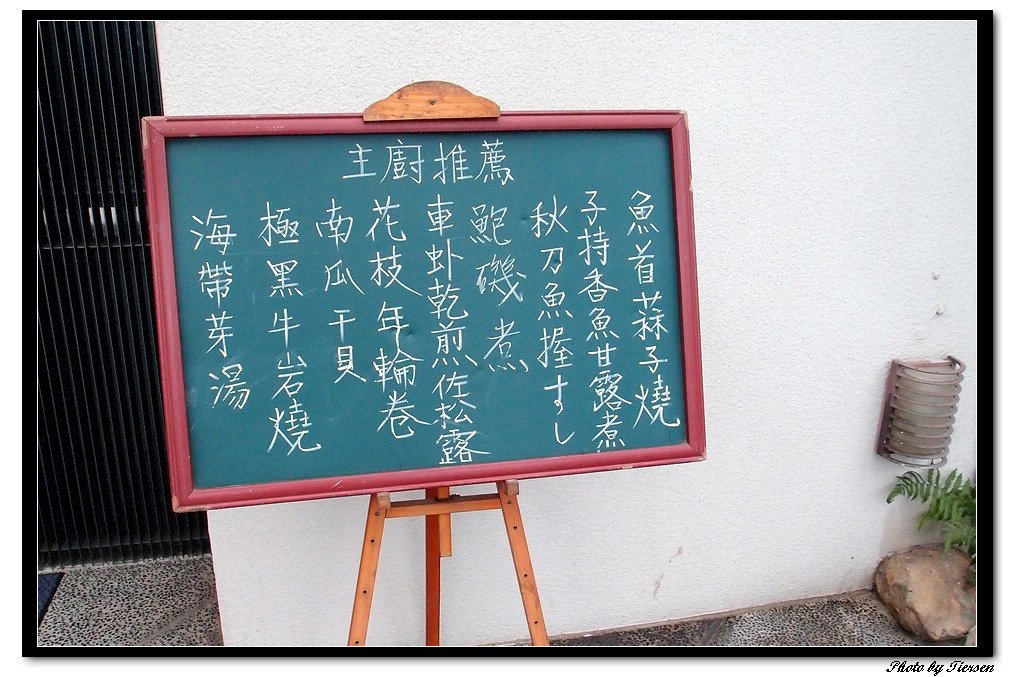 主廚推薦
魚首蒜子燒
子持香魚甘露煮
秋刀魚握すし
鮑磯煮
車虾乾煎佐松露
花枝年輪卷
南瓜干貝
極黑牛岩燒
海帶芽湯
Photo by Tiersen